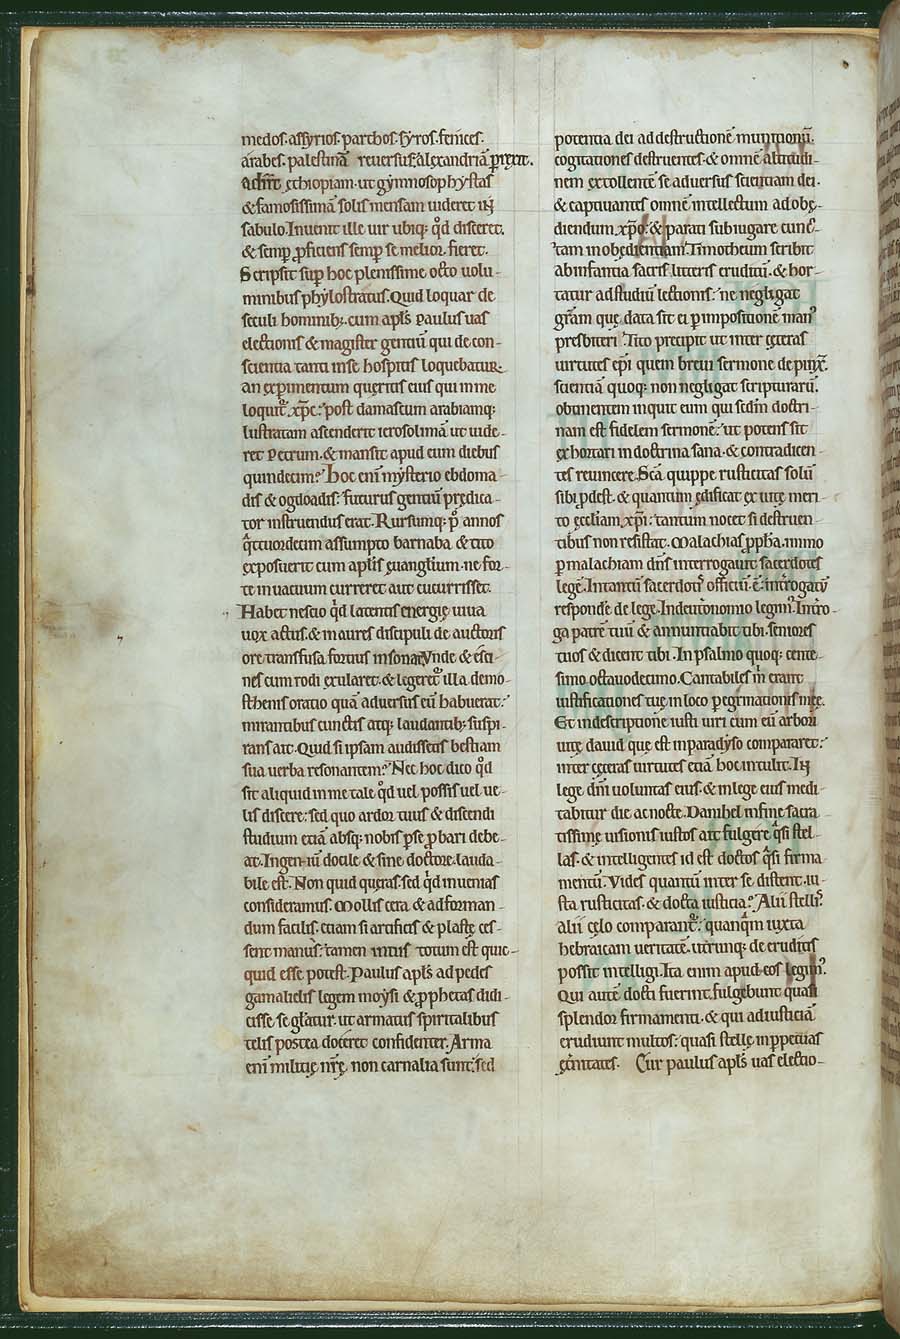 medos. assyrios. parthos. syros. fenices.
arabes. palestinā reuersus: alexandriā prexit.
adiret ęthiopiam. ut gymnosophystas
& famosissimā solis mensam uideret in
sabulo. Inuenit ille uir ubiq; qđ disceret.
& semꝑ ꝓficiens semꝑ se melior fieret.
Scripsit suꝑ hoc plenissime octo uolu-
minibus phylostratus. Quid loquar de
seculi hominib;. cum apl̄s paulus uas
electionis & magister gentiū qui de con-
scientia tanti in se hospitis loquebatur.
an exꝑimentum queritis eius qui in me
loquit᷑ xp̄c: post damascum arabiamq;
lustratam ascenderit ierosolimā ut uide-
ret Petrum. & mansit apud eum diebus
quindecim? Hoc eni mysterio ebdoma-
dis & ogdoadis: futurus gentiū prędica-
tor instruendus erat. Rursumq; p̄ annos
q̄ttuordecim assumpto barnaba & tito
exposuerit cum aplis ęuanglium. ne for-
te in uacuum curreret aut cucurrisset.
Habet nescio qđ latentis energię uiua
uox actus. & in aures discipuli de auctoris
ore transfusa fortius insonat. Vnde & esci-
nes cum rodi exularet. & legeret᷑ illa demo-
sthenis oratio quā aduersus eū habuerat:
mirantibus cunctis atq; laudantib; suspi-
rans ait. Quid si ipsam audissetis bestiam
sua uerba resonantem? Nec hoc dico qđ
sit aliquid in me tale qđ uel possis uel ue-
lis discere: sed quo ardor tuus & discendi
studium etiā absq; nobis ꝑ se ꝓbari debe-
at. Ingeniū docile & sine doctore lauda-
bile est. Non quid queras. sed qđ inuenias
consideramus. Mollis cera & ad forman-
dum facilis. etiam si artificis & plastę ces-
sent manus: tamen intus totum est quic-
quid esse potest. Paulus apl̄s ad pedes
gamalielis legem moysi & ꝓphetas didi-
cisse se gl̄atur. ut armatus spiritalibus
telis postea doceret confidenter. Arma
eni militię nr̄ę. non carnalia sunt: sed
potentia dei ad destructionē munitionū.
cogitationes destruentes. & omnē altitudi-
nem extollentē se aduersus scientiam dei.
& captiuantes omnē intellectum ad obę-
diendum xp̄o: & parati subiugare cunc-
tam inobędientiam. Timotheum scribit
ab infantia sacris litteris eruditū. & hor-
tatur ad studiū lectionis: ne negligat
gr̄am que data sit ei ꝑ impositionē man᷒
presbiteri. Tito precipit ut inter ceteras
uirtutes ep̄i quem breui sermone depinx̄.
scientiā quoq; non negligat scripturarū.
obtinentem inquit eum qui scdm doctri-
nam est fidelem sermonē: ut potens sit
exhortari in doctrina sana. & contradicen-
tes reuincere. Scā quippe rusticitas solū
sibi ꝓdest. & quantum ędificat ex uitę meri-
to eccliam xp̄i: tantum nocet si destruen-
tibus non resistat. Malachias ꝓpha. immo
ꝑ malachiam dn̄s interrogauit sacerdotes
legē. Intantū sacerdotis officiū ē. interrogatū
respondē de lege. In deutronomio legim᷒. Intro-
ga patrē tuū & annuntiabit tibi. seniores
tuos & dicent tibi. In psalmo quoq; cente-
simo octauodecimo. Cantabiles m̄ erant
iustificationes tuę in loco ꝑegrinationis męę.
Et in descriptione iusti uiri cum eū arbori
uitę dauid que est in paradyso compararet:
inter ceteras uirtutes etiā hoc intulit. In
lege dn̄i uoluntas eius. & in lege eius medi-
tabitur die ac nocte. Danihel in fine sacra-
tissimę uisionis iustos ait fulgere q̄si stel-
las. & intelligentes id est doctos q̄si firma-
mentū. Vides quantū inter se distent. iu-
sta rusticitas. & docta iusticia? Alii stellis.
alii cęlo comparant᷑. quanq̄m iuxta
hebraicam ueritatē. utrunq; de eruditis
possit intelligi. Ita enim apud eos legim᷒.
Qui autē docti fuerint. fulgebunt quasi
splendor firmamenti. & qui ad iusticiā
erudiunt multos: quasi stellę in ꝑpetuas
ęt̄nitates. Cur paulus apl̄s uas electio-